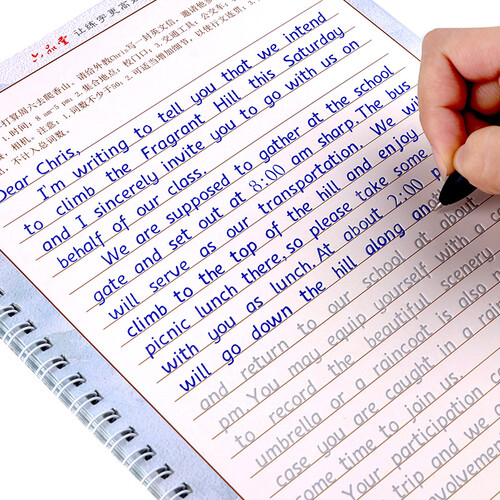 六品堂 让练字更高
打算周六去爬香山，请给外教Chris写一封英文信，邀请他
1. 时间：8 am—5 pm；2. 集合地点：校门口；3. 交通工具：公交车；
相机。注意：1. 词数不少于50；2. 可适当增加细节，以使行文连贯；3.
不计入总词数：
Dear Chris,
I'm writing to tell you that we intend
to climb the Fragrant Hill this Saturday
and I sincerely invite you to go with us on
behalf of our class.
We are supposed to gather at the school
gate and set out at 8:00 am sharp. The bus
will serve as our transportation. We will
climb to the top of the hill and enjoy
picnic lunch there, so please take some
with you as lunch. At about 2:00 p
will go down the hill along ano
and return to our school at about
pm. You may equip yourself with a
to record the beautiful scenery
umbrella or a raincoat is also
case you are caught in a rain
some time to join us.
Your participation c
trip and we
volvemen